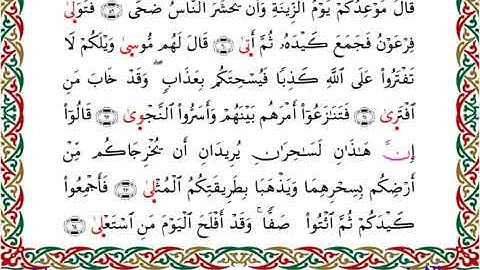 قَالَ مَوْعِدُكُمْ يَوْمُ ٱلزِّينَةِ وَأَن يُحْشَرَ ٱلنَّاسُ ضُحًى ۝٥٩ فَتَوَلَّىٰ
فِرْعَوْنُ فَجَمَعَ كَيْدَهُۥ ثُمَّ أَتَىٰ ۝٦٠ قَالَ لَهُم مُّوسَىٰ وَيْلَكُمْ لَا
تَفْتَرُوا۟ عَلَى ٱللَّهِ كَذِبًا فَيُسْحِتَكُم بِعَذَابٍ ۖ وَقَدْ خَابَ مَنِ
ٱفْتَرَىٰ ۝٦١ فَتَنَٰزَعُوٓا۟ أَمْرَهُم بَيْنَهُمْ وَأَسَرُّوا۟ ٱلنَّجْوَىٰ ۝٦٢ قَالُوٓا۟
إِنْ هَٰذَٰنِ لَسَٰحِرَٰنِ يُرِيدَانِ أَن يُخْرِجَاكُم مِّنْ
أَرْضِكُم بِسِحْرِهِمَا وَيَذْهَبَا بِطَرِيقَتِكُمُ ٱلْمُثْلَىٰ ۝٦٣ فَأَجْمِعُوا۟
كَيْدَكُمْ ثُمَّ ٱئْتُوا۟ صَفًّا ۚ وَقَدْ أَفْلَحَ ٱلْيَوْمَ مَنِ ٱسْتَعْلَىٰ ۝٦٤